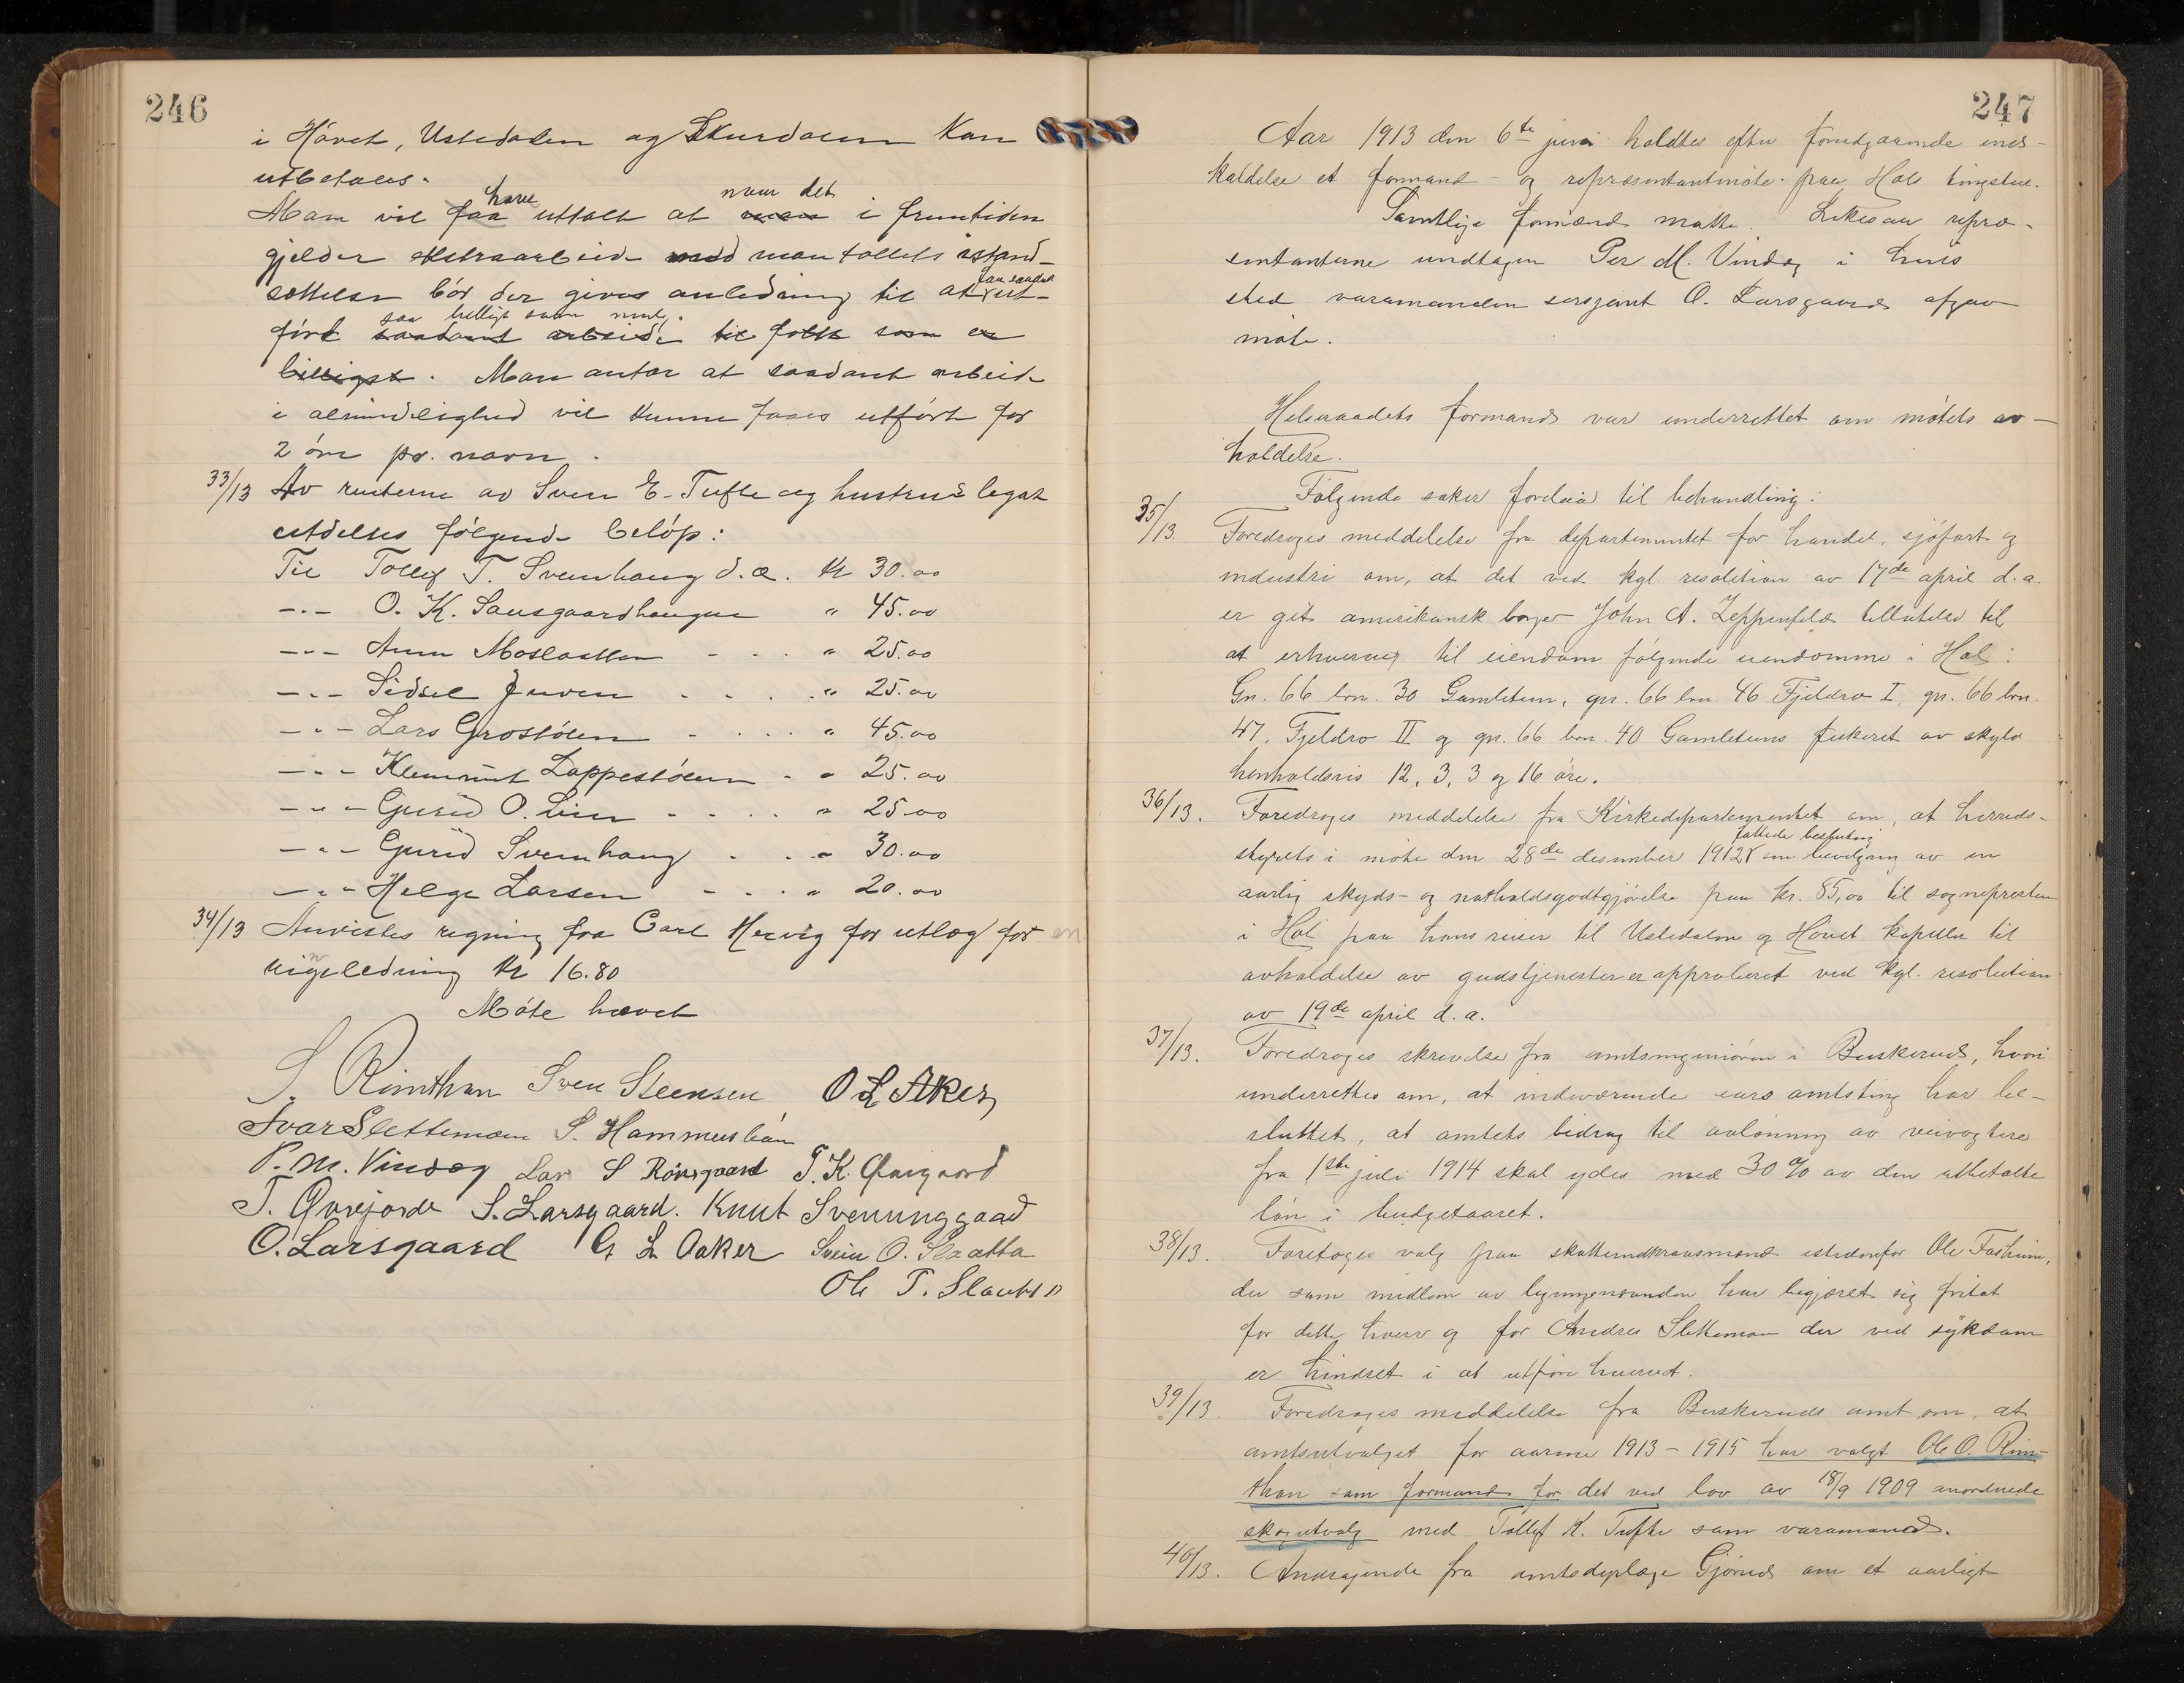 246
i Hövet, Ustedalen og Skurdalen kan
utbetales.
Man vil faa have uttalt at man naar det i fremtiden
gjelder ekstraarbeide med mantallets istand-
sættelse bör der gives anledning til at faa saadant ut-
fört saadant arbeide til folk som er saa billigt som mulig.
billigst. Man antar at saadant arbeide
i almindelighed vil kunne faaes utfört for
2 öre pr. navn.
33/13 Av renterne av Sven E. Tufte og hustrus legat
utdeltes fölgende belöp:
Til Tollef T. Sveinhaug d.æ. kr 30.00
-"- O. K. Sausgaardhaugen " 45.00
-"- Anna Moslaatten - - - " 25.00
-"- Sidsel Juven - - - " 25.00
-"- Lars Grostölen - - - " 45.00
-"- Klemmet Lappestölen - " 25.00
-"- Guri O. Lien - - - " 25.00
-"- Guri Sveinhaug - - " 30.00
-"- Helge Larsen - - - " 20.00
34/13 Anvistes regning fra Carl Hervig for utlæg for en
ringeledning kr 16.80
Möte hævet
S. Rimthun Sven Steensen O L Aker
Ivar Slettemoen S. Hammersbøen
P. M. Vindeg Lars S Rönsgaard T. K.
T. Övrejorde S. Larsgaard. Knut Svenunggaard
O. Larsgaard G L Aaker Svein O. Slaatta
Ole T. Slaatta
247
Aar 1913 den 6te juni holdtes efter foredgaaende inds-
kaldelse et formand- og repræsentantmöte paa Hols tingstue.
Samtlige formænd møtte. Likesaa repræ-
sentanterne undtagen Per M. Vindeg i hvis
sted varamanden sersjant O. Larsgaard afgav
möte.
Helseraadets formand var underrettet om mötets av-
holdelse.
Fölgende saker forelaa til behandling:
35/13. Foredroges meddelelse fra departementet for handel, sjöfart og
industri om, at det ved kgl. resolution av 17de april d.a.
er git amerikansk borger John A. Zeppenfeld tilladelse til
at erhverve til eiendom fölgende eiendomme i Hol:
Gn. 66 brn. 30 Gamletun, gn. 66 brn. 46 Fjeldro I, gn. 66 brn.
47, Fjeldro II og gn. 66 brn. 40 Gamletuns fiskeret av skyld
henholdsvis 12, 3, 3 og 16 öre.
36/13. Foredroges meddelelse fra Kirkedepartementet om, at herreds-
styrets i möte den 28de desember 1912 fattede beslutning om bevilgning av en
aarlig skyds- og natholdsgodtgjörelse paa kr. 85,00 til sognepresten
i Hol paa hans reiser til Ustedalen og Hövet kapeller til
avholdelse av gudstjenester er approberet ved kgl. resolution
av 19de april d.a.
37/13. Foredroges skrivelse fra amtsingeniören i Buskerud, hvori
underrettes om, at indeværende aars amtsting har be-
sluttet, at amtets bidrag til avlönning av veivogtere
fra 1ste juli 1914 skal ydes med 30 % av den utbetalte
lön i budgetaaret.
38/13. Foretoges valg paa skatteindkrævsmænd istedenfor Ole Tosheim,
der som medlem av ligningsnævnden har begjæret sig fritat
for dette hverv og for Andres Slettemoen der ved sykdom
er hindret i at utföre hvervet.
39/13. Foredroges meddelelse fra Buskeruds amt om, at
amtsutvalget for aarene 1913-1915 har valgt Ole O. Rim-
thun som formand for det ved lov av 18/9 1909 anordnede
skogutvalg med Tollef K. Tufte som varamand.
40/13. Andragende fra amtsdyrlæge Gjörud om et aarligt